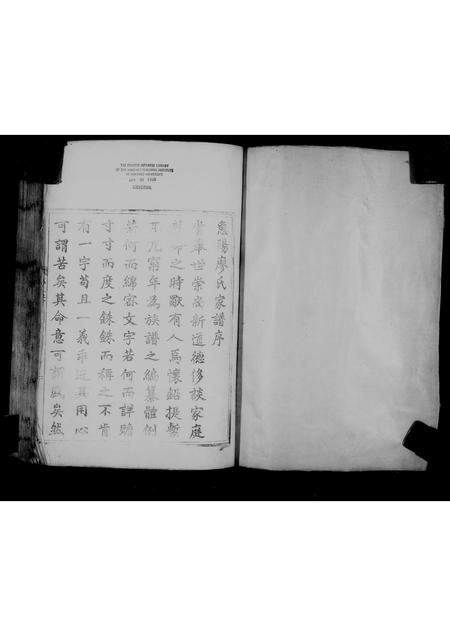 THE CHINESE-JAPANESE LIBRARY
OF THE HARVARD-YENCHING INSTITUTE
AT HARVARD UNIVERSITY
惠陽廖氏家譜序
當舉世崇尚新道德侈談家庭
革命之時猷有人焉懷鉛提槧
兀兀窮年為族譜之編纂體例
若何而綿密文字若何而詳贍
寸寸而度之銖銖而稱之不肯
有一字苟且一義乖迕其用心
可謂苦矣其命意可謂盛矣然